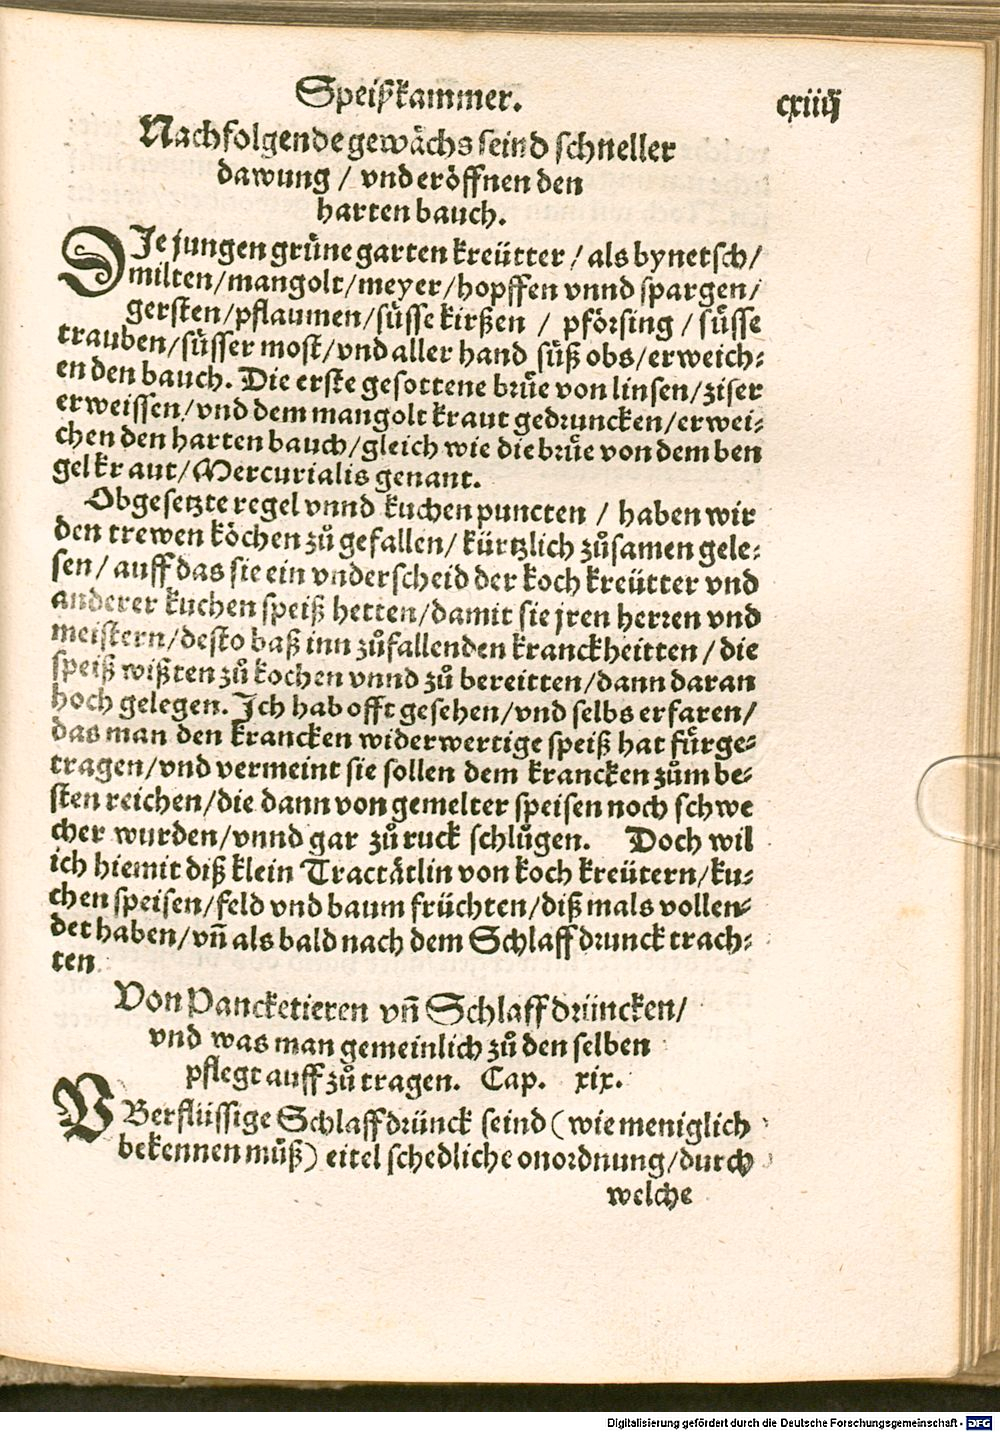 Speißkammer. cxiiij
Nachfolgende gewächs seind schneller
dawung / vnd eröffnen den
harten bauch.
DJe jungen grüne garten kreütter / als bynetsch/
milten/mangolt/meyer/hopffen vnnd spargen/
gersten/pflaumen/süsse kirßen / pförsing / süsse
trauben/süsser most/vnd aller hand süß obs/erweich⸗
en den bauch. Die erste gesottene brüe von linsen/ziser
erweissen/vnd dem mangolt kraut gedruncken/erwei⸗
chen den harten bauch/gleich wie die brüe von dem ben
gel kraut/Mercurialis genant.
Obgesetzte regel vnnd kuchen puncten / haben wir
den trewen köchen zů gefallen/ kürtzlich zůsamen gele⸗
sen/ auff das sie ein vnderscheid der koch kreütter vnd
anderer kuchen speiß hetten/damit sie jren herren vnd
meistern/desto baß inn zůfallenden kranckheitten / die
speiß wißten zů kochen vnnd zů bereitten/dann daran
hoch gelegen. Jch hab offt gesehen/vnd selbs erfaren/
das man den krancken widerwertige speiß hat fürge⸗
tragen/vnd vermeint sie sollen dem krancken zům be⸗
sten reichen/die dann von gemelter speisen noch schwe
cher wurden/vnnd gar zů ruck schlůgen. Doch wil
ich hiemit diß klein Tractätlin von koch kreütern/ku⸗
chen speisen/feld vnd baum früchten/diß mals vollen⸗
det haben/vñ als bald nach dem Schlaffdrunck trach⸗
ten
Von Pancketieren vñ Schlaffdrüncken/
vnd was man gemeinlich zů den selben
pflegt auff zů tragen. Cap. xix.
VBerflüssige Schlaffdrünck seind (wie meniglich
bekennen můß) eitel schedliche onordnung/durch
welche
Digitalisierung gefördert durch die Deutsche Forschungsgemeinschaft - DFG